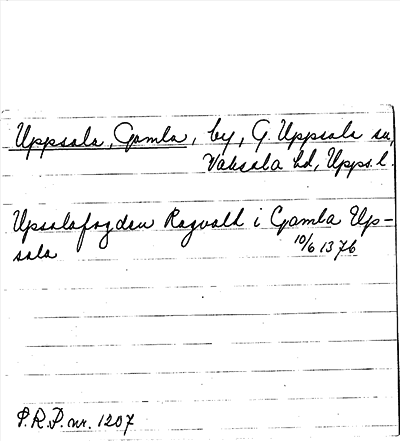 Uppsala, Gamla, by, G. Uppsala sn,
Vaksala hd, Upps. l.
Upsalafogden Ragvald i Gamla Up-
sala 10/6 1376
S.R.P. nr. 1207